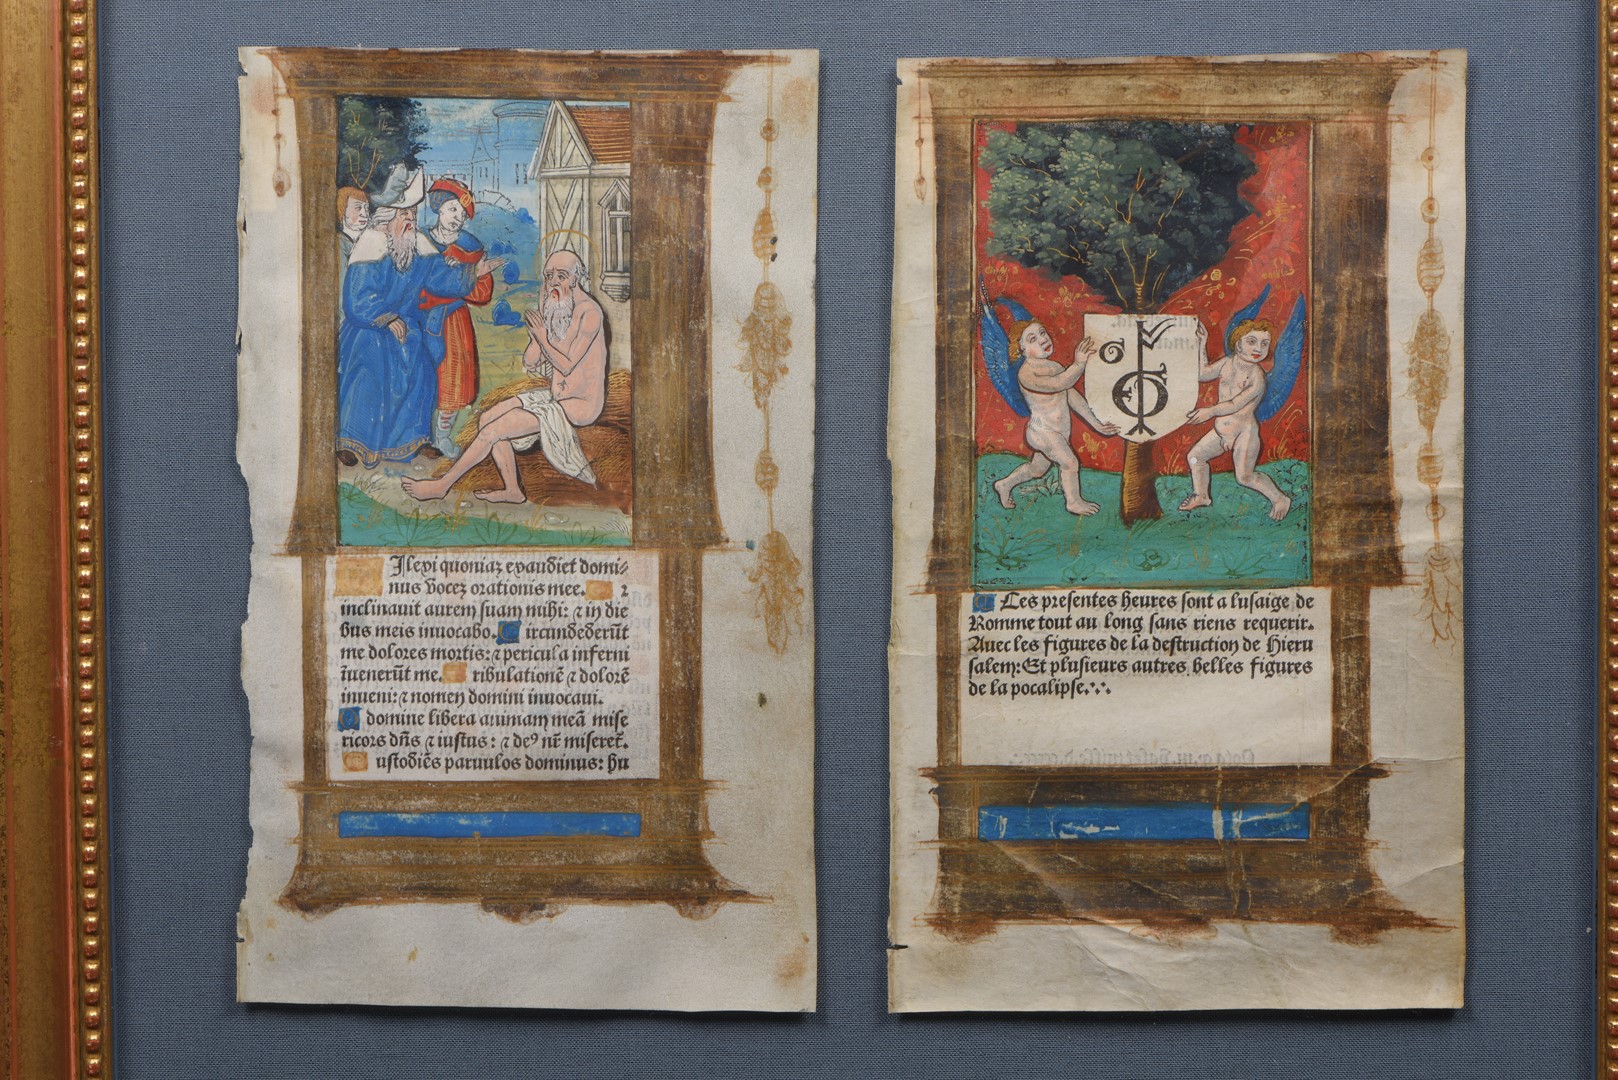 Ilexi quoniaz exaudiet domi⸗
nus vocez orationis mee. ⁊
inclinauit aurem suam mihi: ⁊ in die
bus meis inuocabo. Circundederūt
me dolores mortis: ⁊ pericula inferni
īuenerūt me. ribulationē ⁊ dolorē
inueni: ⁊ nomen domini inuocaui.
O domine libera animam meā mise
ricors dn̄s ⁊ iustus: ⁊ deꝰ nr̄ miseret̄.
C ustodiēs paruulos dominus: hu
Ces presentes heures sont a lusaige de
Romme tout au long sans riens requerir.
Auec les figures de la destruction de Hieru
salem: Et plusieurs autres belles figures
de la pocalipse.